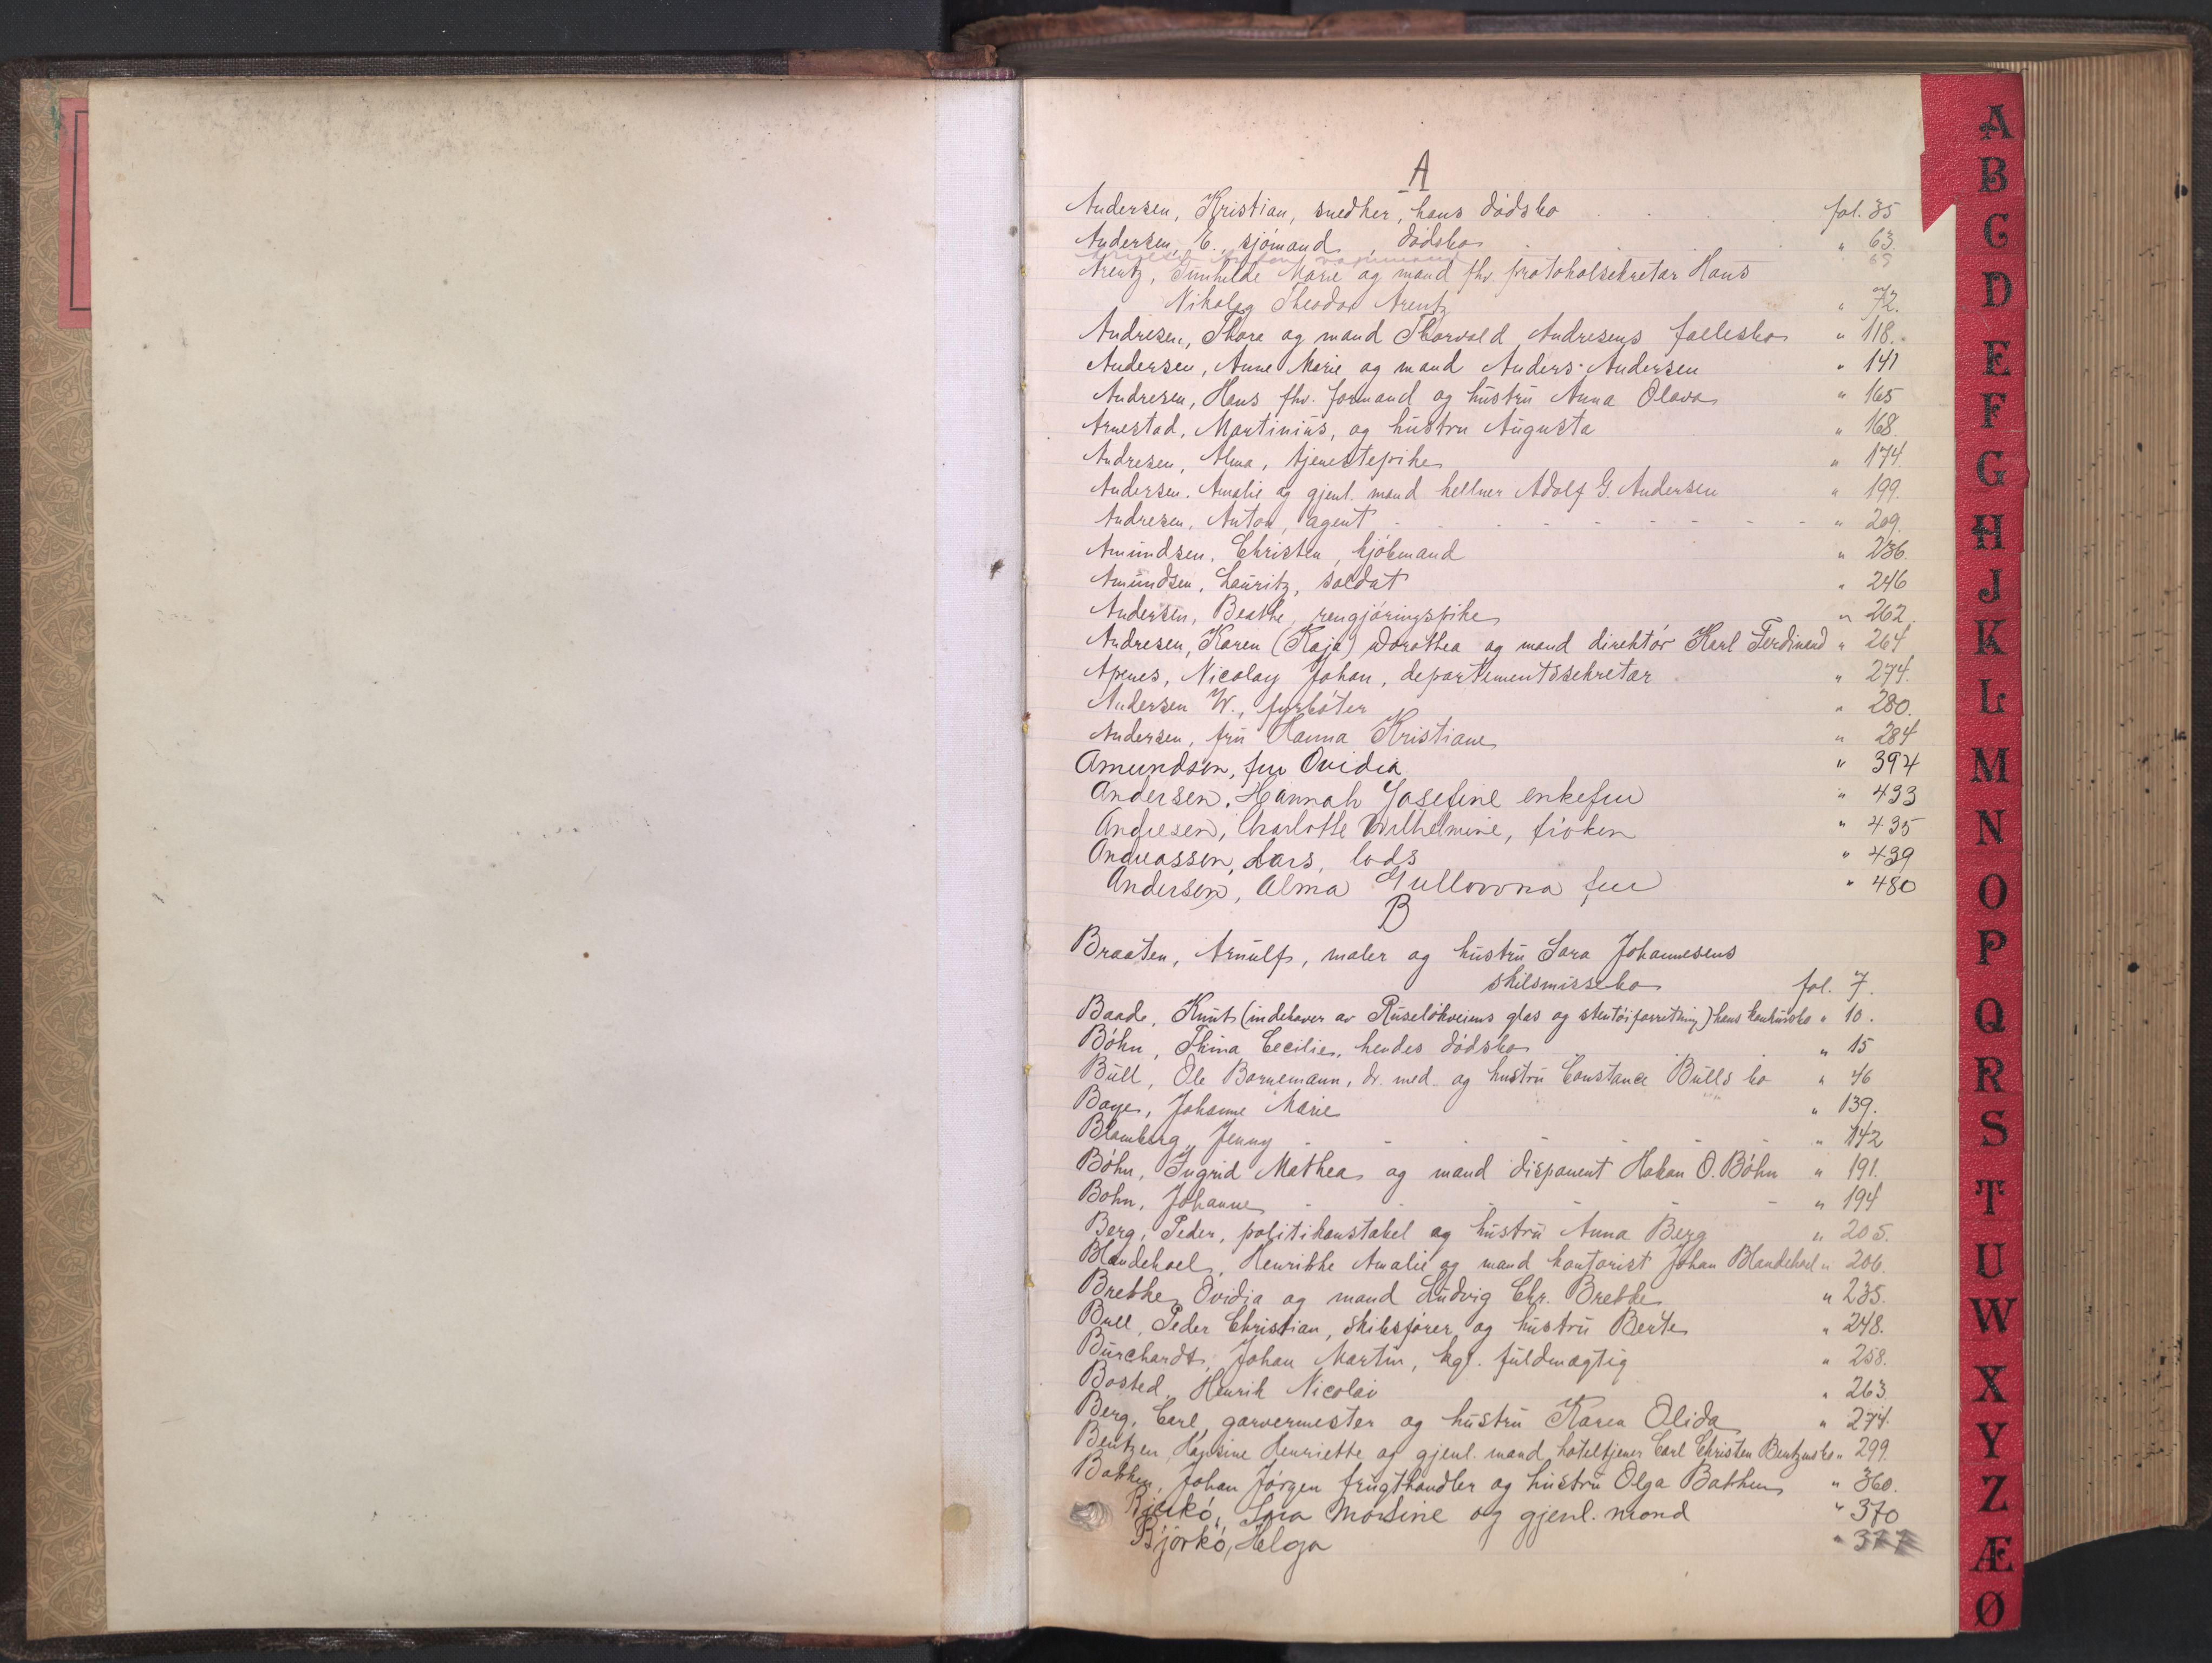 A
Andersen, Kristian, snedker, hans dødsbo . . . . fol. 35
Andersen, E., sjömand, dødsbo . . . " 63.
" 69
Arentz, Gunhilde Marie og mand fhv. protokolsekretær Hans
Nikolay Theodor Arentz " 72.
Andresen, Thora og mand Thorvald Andresens fællesbo " 118.
Andersen, Anne Marie og mand Anders Andersen " 141
Andresen, Hans fhv. formand og hustru Anna Olava " 165
Arnestad, Martinius, og hustru Augusta " 168.
Andresen, Alma, tjenestepike " 174.
Andersen, Amalie og gjenl. mand kellner Adolf G. Andersen " 199.
Andresen, Anton, agent - - - - - - - " 209.
Amundsen, Christen, kjöbmand " 236.
Amundsen, Lauritz, soldat " 246
Andersen, Beathe, rengjöringspike " 262
Andresen, Karen (Kaja) Dorothea og mand direktör Karl Ferdinand " 264
Apenes, Nicolay Johan, departementssekretær " 274.
Andersen W., fyrböter " 280.
Andersen, fru Hanna Kristiane " 284
Amundsen, fru Ovidia " 394
Andersen, Hannah Josefine enkefru " 433
Andresen, Charlotte Wilhelmine, fröken " 435
Andreassen, Lars, lods " 439
Andersen, Alma Gullovona fru " 480
B
Braaten, Arnulf, maler og hustru Sara Johannesens
skilsmissebo fol. 7.
Baade, Knut (indehaver av Ruseløkveiens glas og stentöiforretning) hans konkursbo " 10.
Böhn, Thina Cecilie, hendes dödsbo " 15
Bull, Ole Bornemann, dr. med. og hustru Constance Bulls bo " 46
Boye, Johanne Marie " 139.
Blomberg, Jenny - - - - - - " 142
Böhn, Ingrid Mathea og mand disponent Hakon O. Böhn " 191.
Bohn, Johanne - - - - - " 194
Berg, Peder, politikonstabel og hustru Anna Berg " 205.
Blandehoel, Henrikke Amalie og mand kontorist Johan Blandehoel " 206.
Brekke, Ovidia og mand Ludvig Chr. Brekke " 235.
Bull, Peder Christian, skibsförer og hustru Berte " 248.
Burchardt, Johan Martin, kgl. fuldmægtig " 258.
Bosted, Henrik Nicolai " 263.
Berg, Carl, garvermester og hustru Karen Olida " 274.
Bentzen, Hansine Henriette og gjenl. mand hoteltjener Carl Christen Bentzens bo " 299.
Bakken, Johan Jörgen frugthandler og hustru Olga Bakken " 360.
Björkö, Sara Mortine og gjenl. mand " 370
Björkö, Helga " 377
A
B
C
D
E
F
G
H
J
K
L
M
N
O
P
Q
R
S
T
U
W
X
Y
Z
Æ
Ø